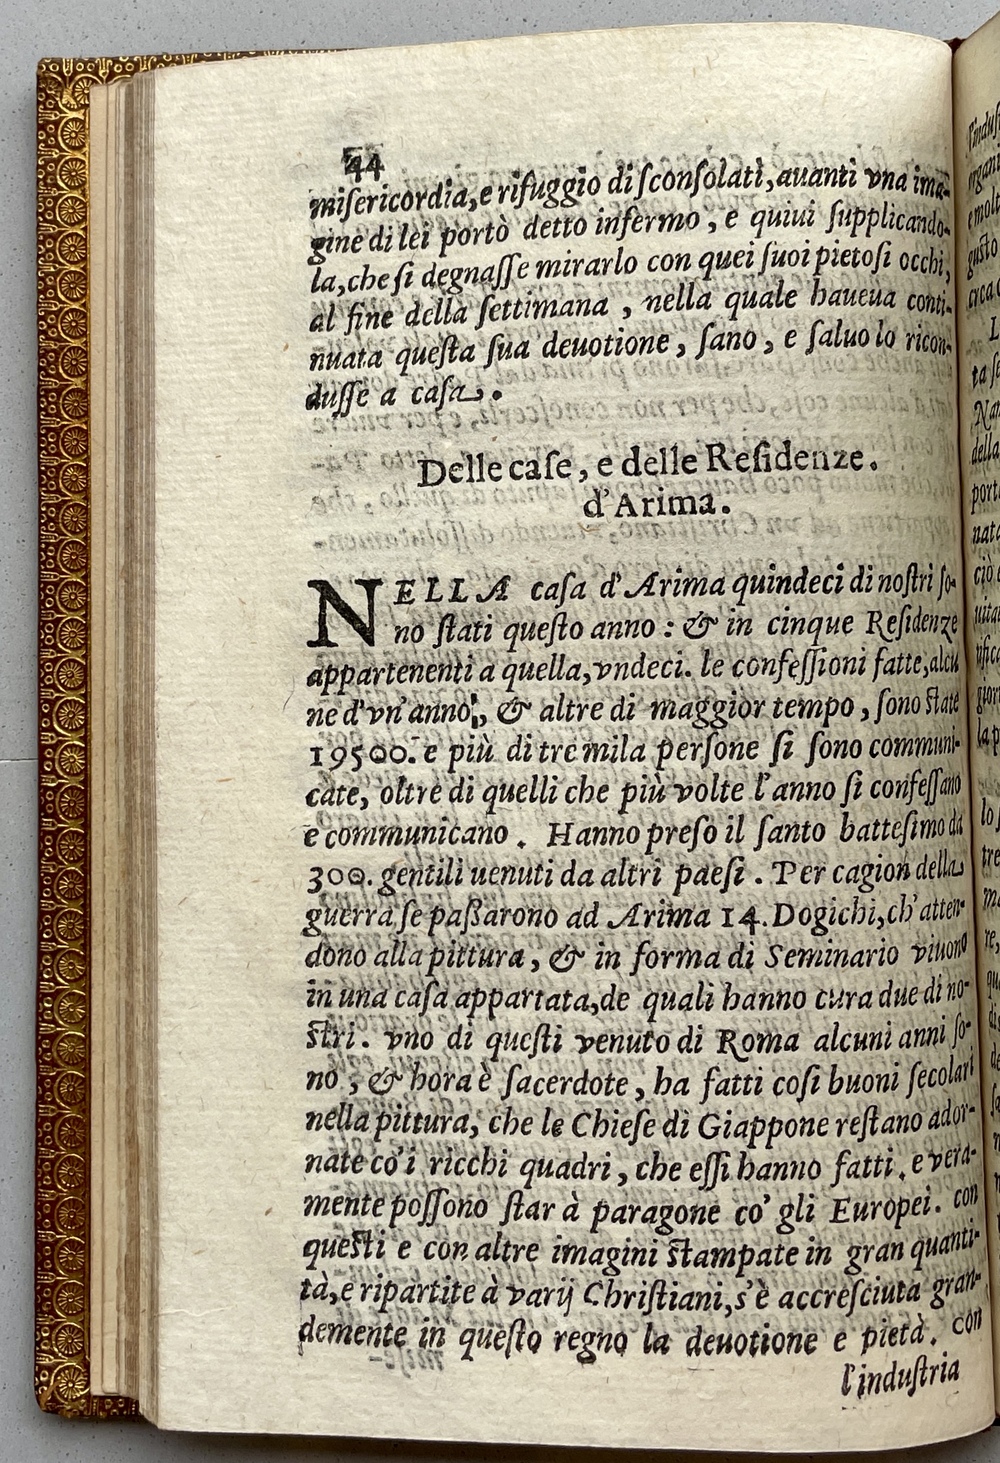 44
misericordia, e rifuggio di sconsolati, auanti vna ima-
gine di lei portò detto infermo, e quiui supplicando-
la, che si degnasse mirarlo con quei suoi pietosi occhi,
al fine della settimana, nella quale haueua conti-
nuata questa sua deuotione, sano, e saluo lo ricon-
dusse a casa.
Delle case, e delle Residenze.
d'Arima.
NELLA casa d'Arima quindeci di nostri so-
no stati questo anno: & in cinque Residenze
appartenenti a quella, vndeci. le confessioni fatte, alcu
ne d'vn'anno, & altre di maggior tempo, sono state
19500. e più di tre mila persone si sono communi-
cate, oltre di quelli che più volte l'anno si confessano
e communicano. Hanno preso il santo battesimo da
300. gentili uenuti da altri paesi. Per cagion della
guerra se paßarono ad Arima 14. Dogichi, ch'atten-
dono alla pittura, & in forma di Seminario viuono
in una casa appartata, de quali hanno cura due di no-
stri. vno di questi venuto di Roma alcuni anni so-
no, & hora è sacerdote, ha fatti cosi buoni secolari
nella pittura, che le Chiese di Giappone restano ador-
nate co'i ricchi quadri, che essi hanno fatti, e vera-
mente possono star à paragone co' gli Europei. con
questi e con altre imagini stampate in gran quanti-
tà, e ripartite à varij Christiani, s'è accresciuta gran-
demente in questo regno la deuotione e pietà. con
l'industria